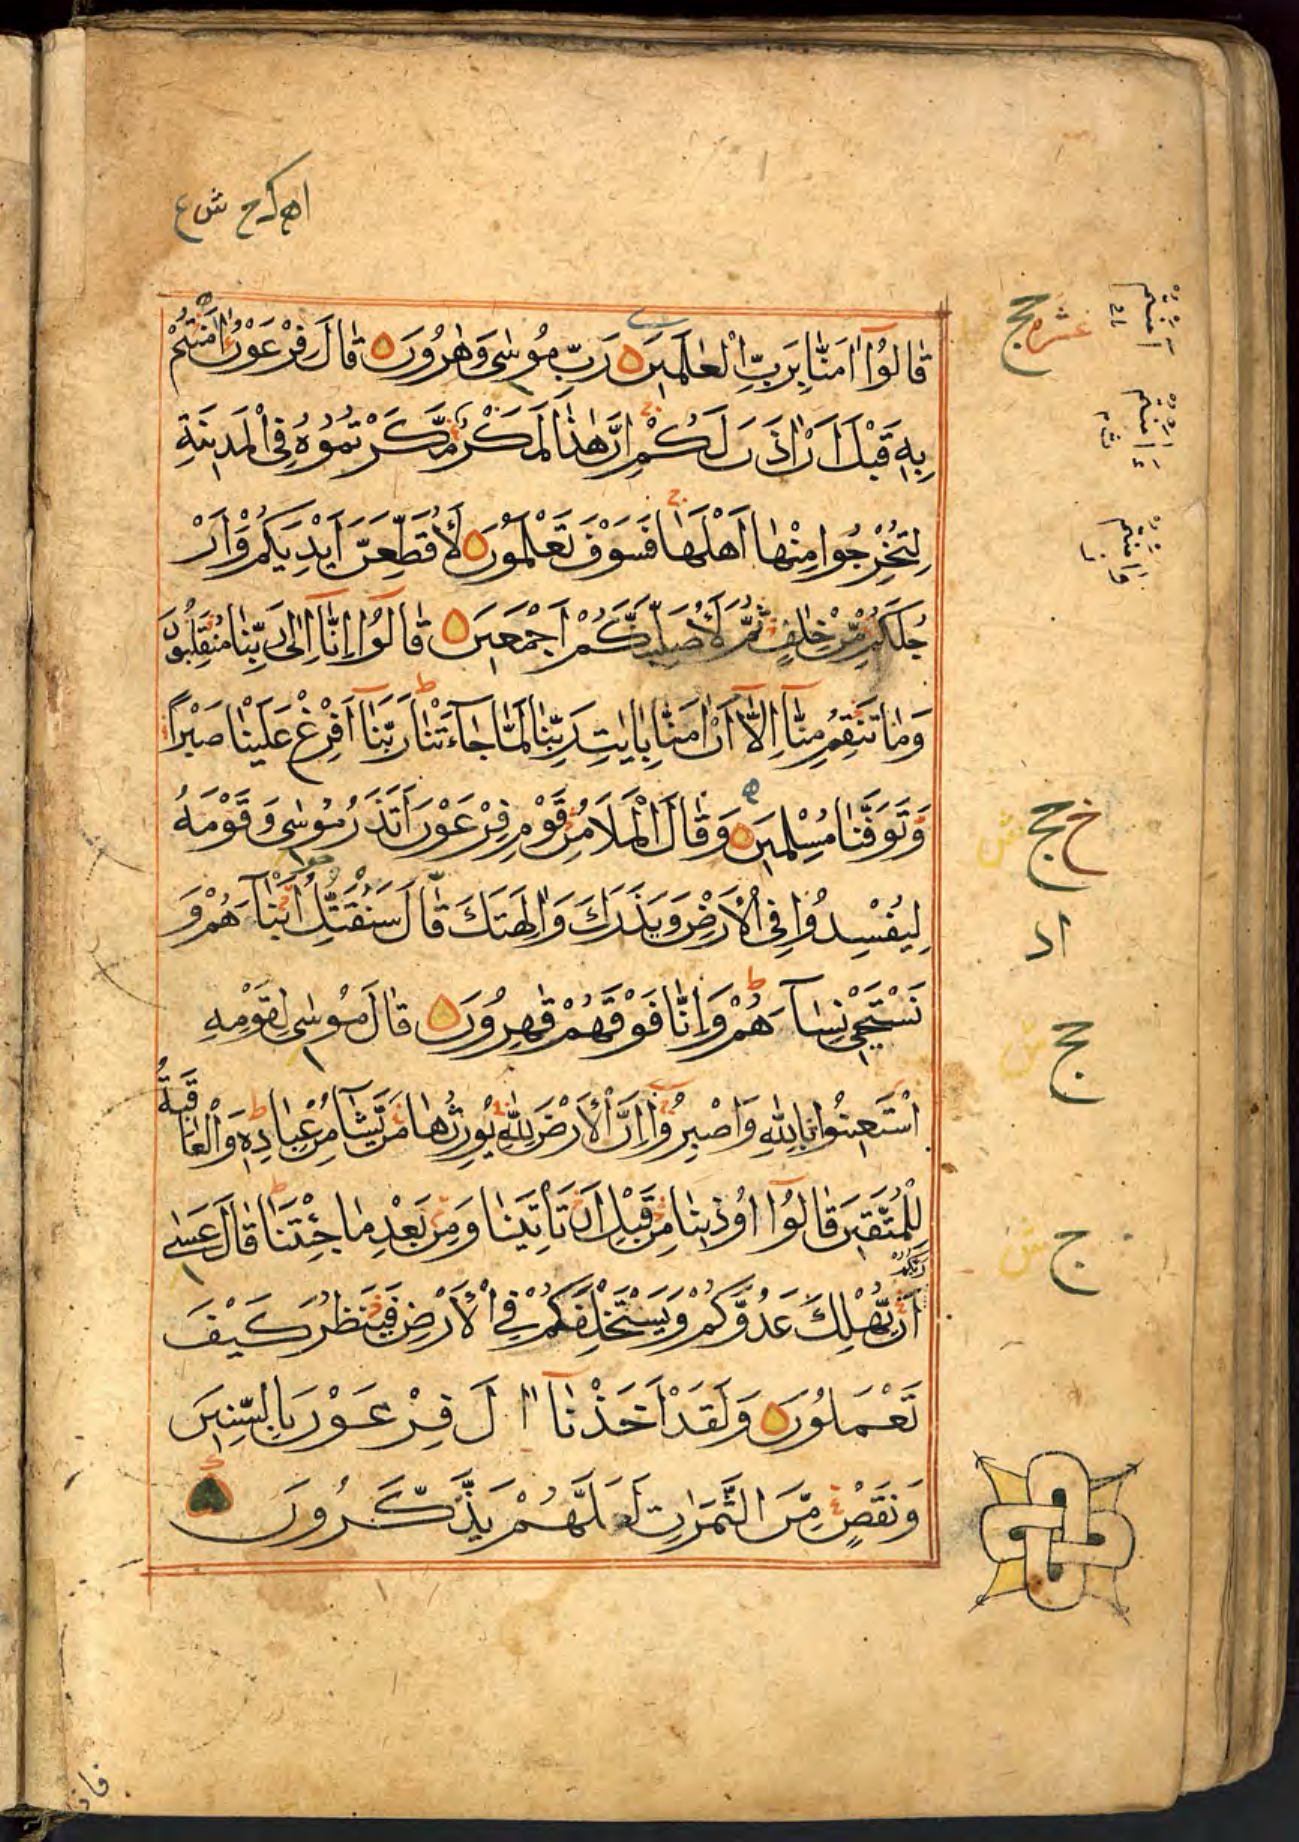 قَالُوْٓا اٰمَنَّا بِرَبِّ الْعٰلَمِيْنَ رَبِّ مُوْسٰى وَهٰرُوْنَ قَالَ فِرْعَوْنُ اٰمَنْتُمْ
بِهٖ قَبْلَ اَنْ اٰذَنَ لَكُمْ اِنَّ هٰذَا لَمَكْرٌ مَّكَرْتُمُوْهُ فِى الْمَدِيْنَةِ
لِتُخْرِجُوا مِنْهَا اَهْلَهَا فَسَوْفَ تَعْلَمُوْنَ لَاُقَطِّعَنَّ اَيْدِيَكُمْ وَاَرْ
جُلَكُمْ مِّنْ خِلَافٍ ثُمَّ لَاُصَلِّبَنَّكُمْ اَجْمَعِيْنَ قَالُوْٓا اِنَّآ اِلٰى رَبِّنَا مُنْقَلِبُوْنَ
وَمَا تَنْقِمُ مِنَّآ اِلَّآ اَنْ اٰمَنَّا بِاٰيٰتِ رَبِّنَا لَمَّا جَآءَتْنَا رَبَّنَآ اَفْرِغْ عَلَيْنَا صَبْرًا
وَّتَوَفَّنَا مُسْلِمِيْنَ وَقَالَ الْمَلَاُ مِنْ قَوْمِ فِرْعَوْنَ اَتَذَرُ مُوْسٰى وَقَوْمَهٗ
لِيُفْسِدُوْا فِى الْاَرْضِ وَيَذَرَكَ وَاٰلِهَتَكَ قَالَ سَنُقَتِّلُ اَبْنَآءَهُمْ وَ
نَسْتَحْيٖ نِسَآءَهُمْ وَاِنَّا فَوْقَهُمْ قٰهِرُوْنَ قَالَ مُوْسٰى لِقَوْمِهِ
اسْتَعِيْنُوْا بِاللّٰهِ وَاصْبِرُوْٓا اِنَّ الْاَرْضَ لِلّٰهِ يُوْرِثُهَا مَنْ يَّشَآءُ مِنْ عِبَادِهٖ وَالْعَاقِبَةُ
لِلْمُتَّقِيْنَ قَالُوْٓا اُوْذِيْنَا مِنْ قَبْلِ اَنْ تَأْتِيَنَا وَمِنْ بَعْدِ مَا جِئْتَنَا قَالَ عَسٰى
رَبُّكُمْ
اَنْ يُّهْلِكَ عَدُوَّكُمْ وَيَسْتَخْلِفَكُمْ فِى الْاَرْضِ فَيَنْظُرَ كَيْفَ
تَعْمَلُوْنَ وَلَقَدْ اَخَذْنَآ اٰلَ فِرْعَوْنَ بِالسِّنِيْنَ
وَنَقْصٍ مِّنَ الثَّمَرٰتِ لَعَلَّهُمْ يَذَّكَّرُوْنَ